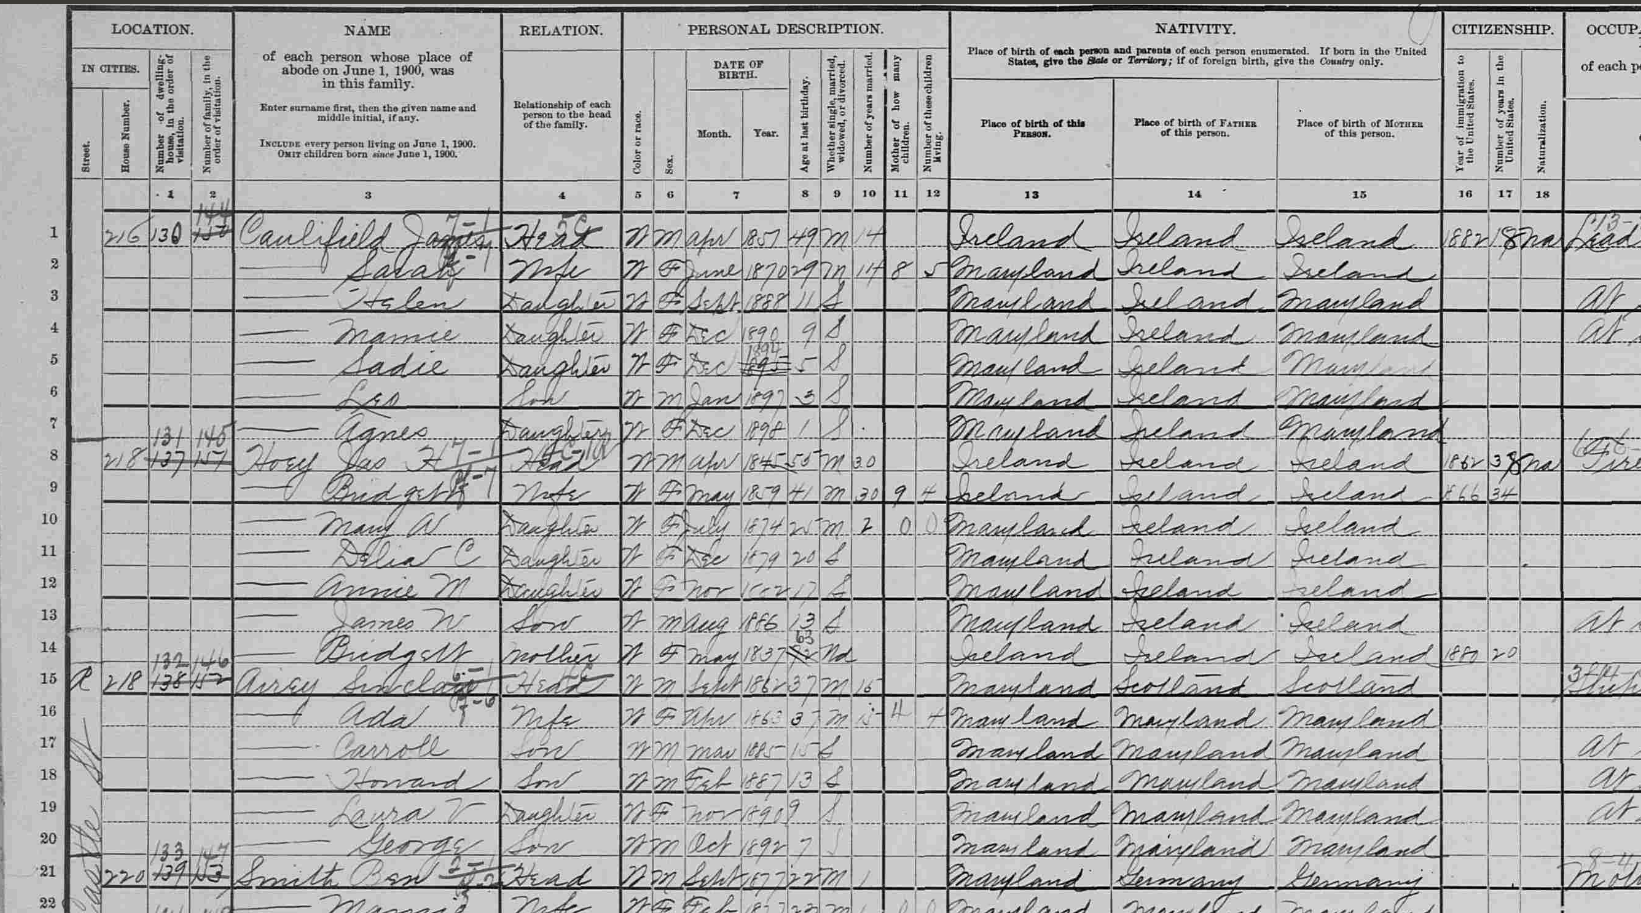 LOCATION. NAME RELATION. PERSONAL DESCRIPTION. NATIVITY. CITIZENSHIP. OCCUP
IN CITIES.
Street.
House Number.
Number of dwelling-house, in the order of visitation.
Number of family, in the order of visitation.
of each person whose place of abode on June 1, 1900, was in this family.
Enter surname first, then the given name and middle initial, if any.
INCLUDE every person living on June 1, 1900.
OMIT children born since June 1, 1900.
Relationship of each person to the head of the family.
Color or race.
Sex.
DATE OF BIRTH.
Month. Year.
Age at last birthday.
Whether single, married, widowed, or divorced.
Number of years married.
Mother of how many children.
Number of these children living.
Place of birth of each person and parents of each person enumerated. If born in the United States, give the State or Territory; if of foreign birth, give the Country only.
Place of birth of this PERSON.
Place of birth of FATHER of this person.
Place of birth of MOTHER of this person.
Year of immigration to the United States.
Number of years in the United States.
Naturalization.
of each p
1 2 3 4 5 6 7 8 9 10 11 12 13 14 15 16 17 18
144
1 216 130 Caulifield James Head W M Apr 1857 49 M 14 Ireland Ireland Ireland 1882 18 Na
2 Sarah Wife W F June 1870 29 M 14 8 5 Maryland Ireland Ireland
3 Helen Daughter W F Sept 1888 11 S Maryland Ireland Maryland At
4 Mamie Daughter W F Dec 1890 9 S Maryland Ireland Maryland At
1894
5 Sadie Daughter W F Dec 1895 5 S Maryland Ireland Maryland
6 Leo Son W M Jan 1897 3 S Maryland Ireland Maryland
7 Agnes Daughter W F Dec 1898 1 S Maryland Ireland Maryland
131 145
8 218 137 151 Hoey Jas H Head W M Apr 1845 55 M 30 Ireland Ireland Ireland 1862 38 Na Fire
9 Bridgett Wife W F May 1859 41 M 30 9 4 Ireland Ireland Ireland 1866 34
10 Mary A Daughter W F July 1874 25 M 2 0 0 Maryland Ireland Ireland
11 Delia C Daughter W F Dec 1879 20 S Maryland Ireland Ireland
12 Annie M Daughter W F Nov 1882 17 S Maryland Ireland Ireland
13 James W Son W M Aug 1886 13 S Maryland Ireland Ireland At
63
14 Bridgett Mother W F May 1837 Wd Ireland Ireland Ireland 1880 20
132 146
15 R 218 138 152 Airey Sinclair Head W M Sept 1862 37 M 15 Maryland Scotland Scotland
16 Ada Wife W F Apr 1863 37 M 15 4 4 Maryland Maryland Maryland
17 Carroll Son W M Mar 1885 15 S Maryland Maryland Maryland At
18 Howard Son W M Feb 1887 13 S Maryland Maryland Maryland At
19 Laura V Daughter W F Nov 1890 9 S Maryland Maryland Maryland At
20 George Son W M Oct 1892 7 S Maryland Maryland Maryland
133 147
21 220 139 153 Smith Ben Head W M Sept 1877 22 M 1 Maryland Germany Germany
22 Mamie Wife W F Feb 1877 23 M 1 0 0 Maryland Maryland Maryland
Castle St